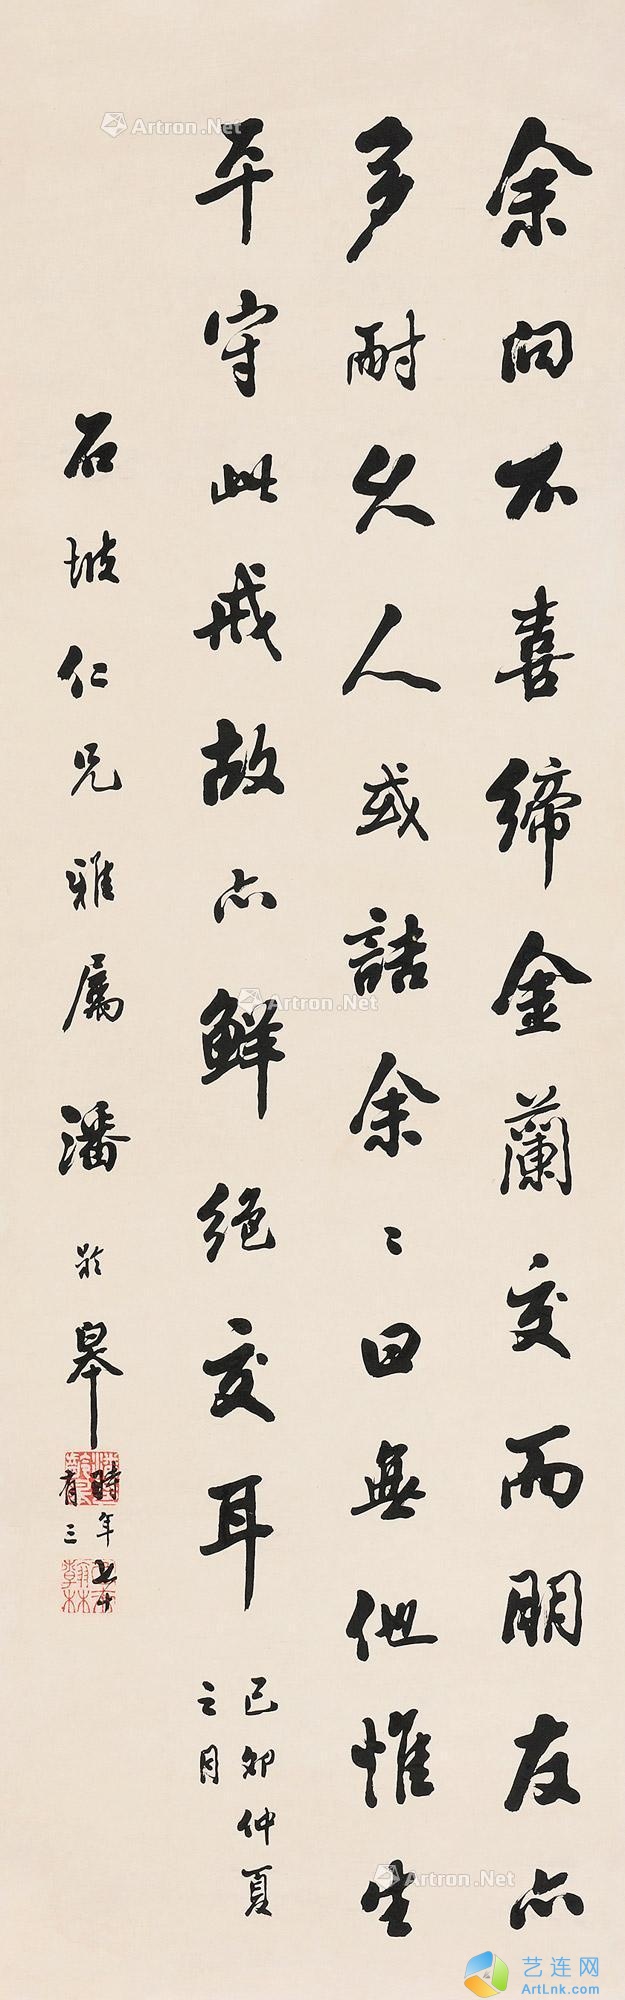 余向不喜締金蘭交而朋友亦
多耐久人或詰余〻曰無他惟生
平守此戒故亦鮮絕交耳
己卯仲夏
之月
石坡仁兄雅屬潘齡皋
時年七十
有三
Artron.Net
Artron.Net
Artron.Net
Artron.Net
艺连网
ArtLnk.com